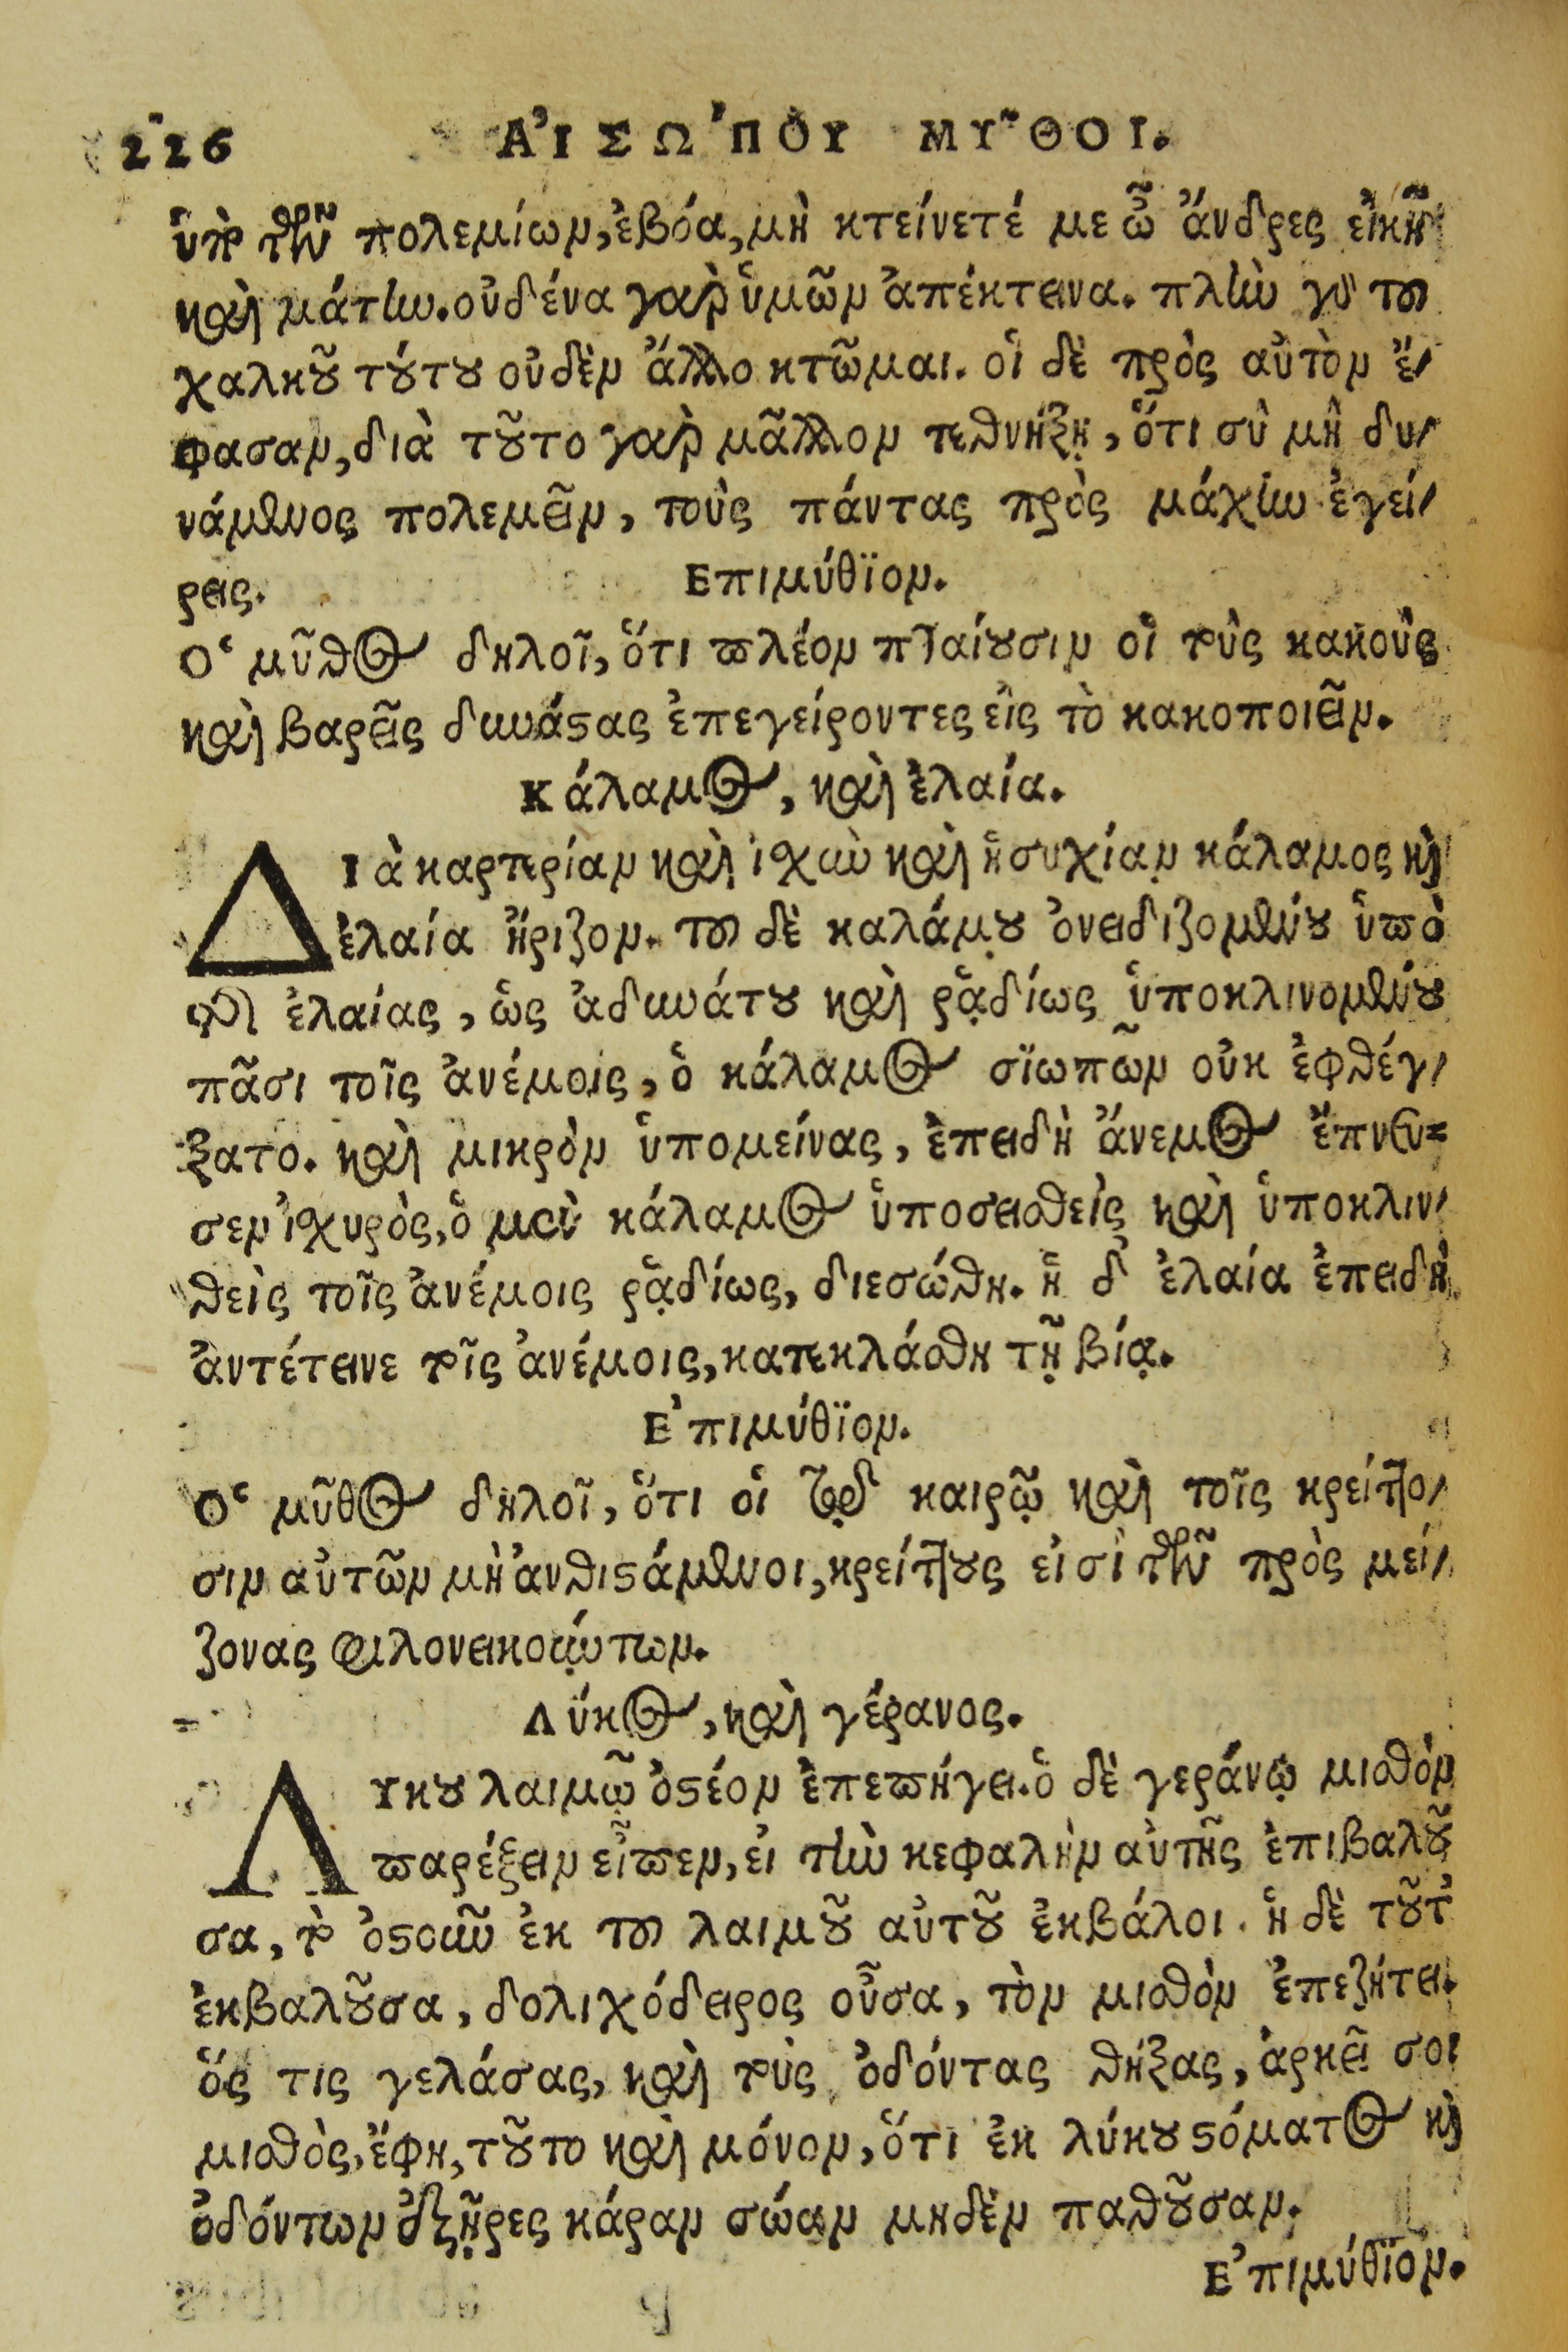 226 ΑἸΣΩ´ΠΟΥ ΜΥ῀ΘΟΙ.
ὑπὸ τῶν πολεμίων, ἐβόα, μὴ κτείνετέ με ὦ ἄνδρες εἰκῆ
καὶ μάτην. οὐδένα γαρ ὑμῶν ἀπέκτεινα. πλὴν γὸ τοῦ
χαλκοῦ τούτου οὐδὲν ἄλλο κτῶμαι. οἱ δὲ πρὸς αὐτὸν ἔ-
φασαν, διὰ τοῦτο γαρ μᾶλλον τεθνήξῃ, ὅτι σὺ μὴ δυ-
νάμενος πολεμεῖν, τοὺς πάντας πρὸς μάχην ἐγεί-
ρεις. Επιμύθϊον.
Ο῾ μῦθος δηλοῖ, ὅτι πλέον πταίουσιν οἱ τοὺς κακοὺς
καὶ βαρεῖς δυνάστας ἐπεγείροντες εἰς τὸ κακοποιεῖν.
Κάλαμος, καὶ ἐλαία.
ΔΙὰ καρτερίαν καὶ ἰσχὺν καὶ ἡσυχίαν κάλαμος καὶ
ἐλαία ἤριζον. τοῦ δὲ καλάμου ὀνειδιζομένου ὑπὸ
τῆς ἐλαίας, ὡς ἀδυνάτου καὶ ῥᾳδίως ὑποκλινομένου
πᾶσι τοῖς ἀνέμοις, ὁ κάλαμος σϊωπῶν οὐκ ἐφθέγ-
ξατο. καὶ μικρὸν ὑπομείνας, ἐπειδὴ ἄνεμος ἔπνευ=
σεν ἰσχυρὸς, ὁ μὲν κάλαμος ὑποσεισθεὶς καὶ ὑποκλιν-
θεὶς τοῖς ἀνέμοις ῥᾳδίως, διεσώθη. ἡ δ᾽ ἐλαία ἐπειδὴ
ἀντέτεινε τοῖς ἀνέμοις, κατεκλάσθη τῇ βίᾳ.
Ε᾽πιμύθϊον.
Ο῾ μῦθος δηλοῖ, ὅτι οἱ τῷ καιρῷ καὶ τοῖς κρείττο-
σιν αὐτῶν μὴ ἀνθιστάμενοι, κρείττους εἰσὶ τῶν πρὸς μεί-
ζονας φιλονεικούντων.
Λύκος, καὶ γέρανος.
ΛΥκου λαιμῷ ὀστέον ἐπεπήγει. ὁ δὲ γεράνῳ μισθὸν
παρέξειν εἶπεν, εἰ τὴν κεφαλὴν αὐτῆς ἐπιβαλοῦ
σα, τὸ ὀστοῦν ἐκ τοῦ λαιμοῦ αὐτοῦ ἐκβάλοι. ἡ δὲ τοῦτ᾽
ἐκβαλοῦσα, δολιχόδειρος οὖσα, τὸν μισθὸν ἐπεζήτει.
ὅς τις γελάσας, καὶ τοὺς ὀδόντας θήξας, ἀρκεῖ σοι
μισθὸς, ἔφη, τοῦτο καὶ μόνον, ὅτι ἐκ λύκου στόματος καὶ
ὀδόντων ἐξῇρες κάραν σώαν μηδὲν παθοῦσαν.
Ε᾽πιμύθϊον.